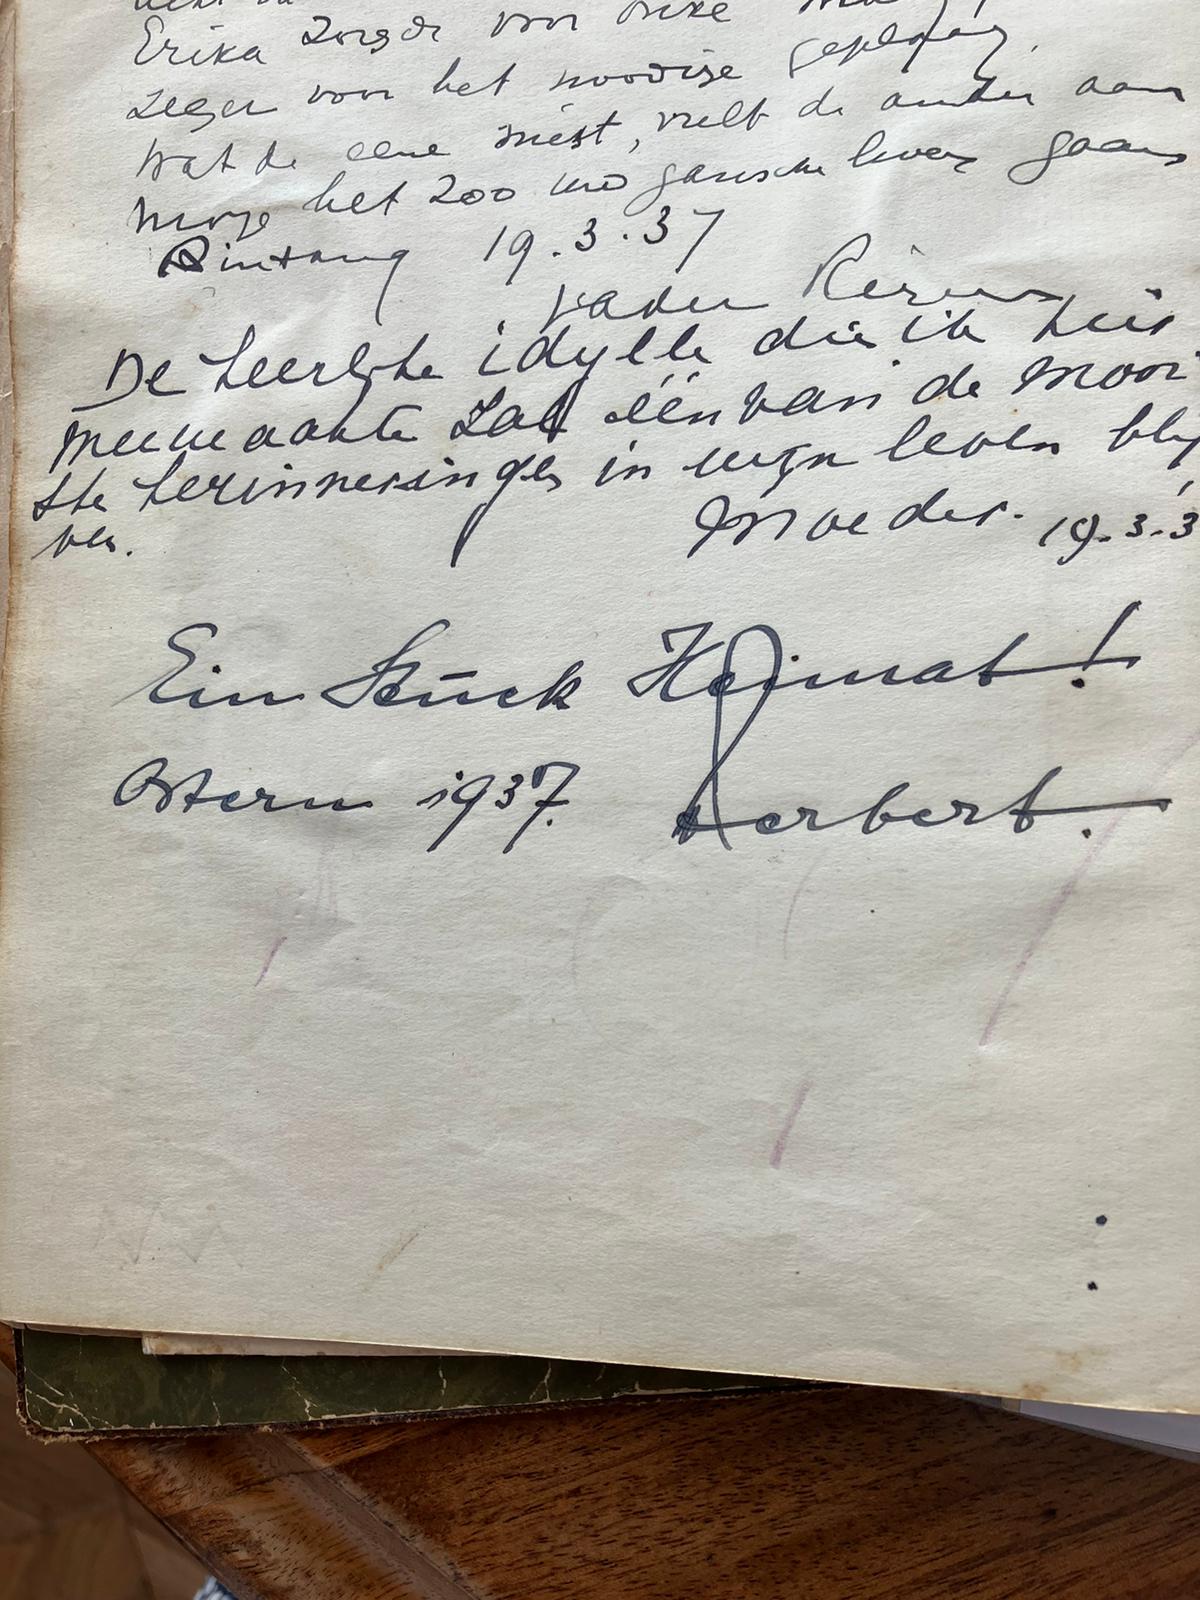 Erika zorgde voor onze
Zeger voor het noodige gepleng
Wat de eene mist, vult de ander aan
Moge het zoo uw gansche leven gaan
Bintang 19.3.37
Vader
De heerlijke idylle die ik hier
meemaakte zal één van de mooi
ste herinneringen in mijn leven blij
ven.
Moeder. 19.3.3
Ein Stück Heimat!
Ostern 1937. Herbert.